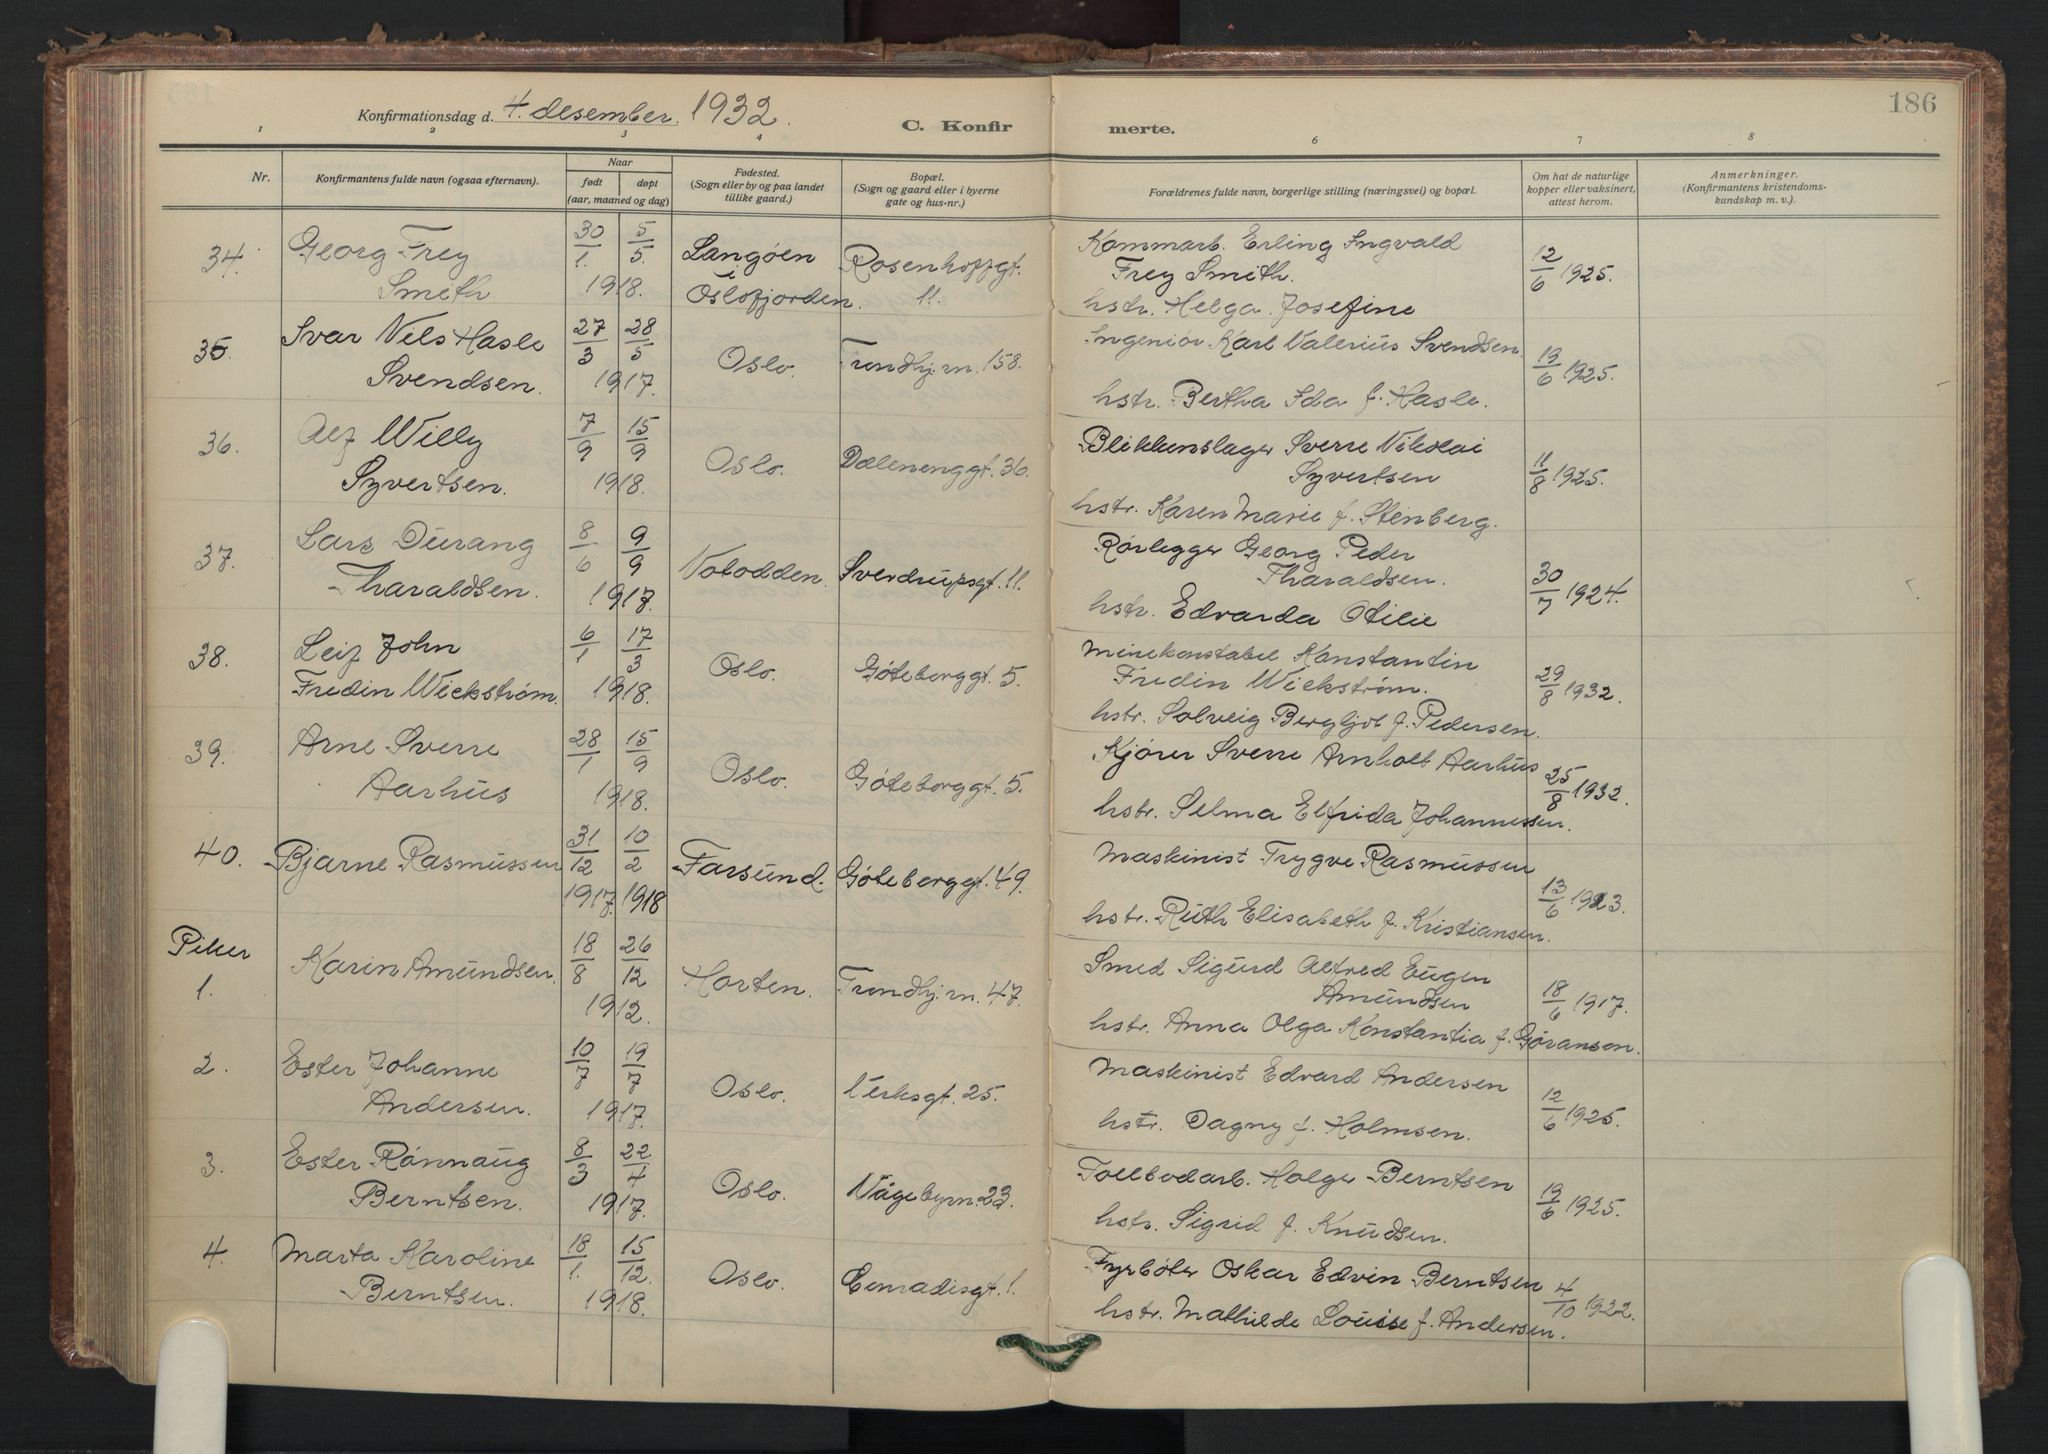 186
Konfirmationsdag d. 4. desember. 1932.
C. Konfirmerte.
1 2 3 4 6 7 8
Nr. Konfirmantens fulde navn (ogsaa efternavn). Naar født døpt (aar, maaned og dag) Fødested. (Sogn eller by og paa landet tillike gaard.) Bopæl. (Sogn og gaard eller i byerne gate og hus-nr.) Forældrenes fulde navn, borgerlige stilling (næringsvei) og bopæl. Om hat de naturlige kopper eller vaksinert, attest herom. Anmerkninger. (Konfirmantens kristendoms-kundskap m. v.).
34. Georg Frey Smith 30/1. 5/5. 1918. Langøen i Oslofjorden. Rosenhoffgt. 11. Kommarb. Erling Ingvald Frey Smith. 12/6 1925.
hstr. Helga Josefine
35. Ivar Nils Hasle Svendsen. 27/3 28/5 1917. Oslo. Trondhj.vn. 158. Ingeniør Karl Valerius Svendsen. 19/6 1925.
hstr. Bertha Ida f. Hasle.
36. Alf Willy Syvertsen. 7/9 15/9 1918. Oslo. Dælenenggt. 36. Blikkenslager Sverre Nikolai Syvertsen 11/8 1925.
hstr. Karen Marie f. Stenberg.
37. Lars Durang Tharaldsen. 8/6 9/9 1917. Notodden. Sverdrupsgt. 11. Rørlegger Georg Peder Tharaldsen. 30/7 1924.
hstr. Edvarda Otilie
38. Leif John Fredin Wickstrøm. 6/1 17/3 1918. Oslo. Gøteborggt. 5. Minekonstabel Konstantin Fredin Wickstrøm. 29/8 1932.
hstr. Solveig Bergljot f. Pedersen.
39. Arne Sverre Aarhus 28/1 15/9 1918. Oslo. Gøteborggt. 5. Kjører Sverre Arnholt Aarhus 25/8 1932.
hstr. Selma Elfrida Johannessen.
40. Bjarne Rasmussen 31/12 1917. 10/2 1918 Farsund. Gøteborggt. 49. Maskinist Trygve Rasmussen 13/6 1923.
hstr. Ruth Elisabeth f. Kristiansen.
Piker
1. Karin Amundsen. 18/8 26/12 1912. Horten. Trondhj.vn. 47. Smed Sigurd Alfred Eugen Amundsen 18/6 1917.
hstr. Anna Olga Konstantia f. Gøransen.
2. Ester Johanne Andersen. 10/7 19/7 1917. Oslo. Verksgt. 25. Maskinist Edvard Andersen 12/6 1925.
hstr. Dagny f. Holmsen.
3. Ester Rønnaug Berntsen. 8/3 22/4 1917. Oslo. Vågebyvn. 23. Tollbodarb. Holger Berntsen 19/6 1925.
hstr. Sigrid f. Knudsen.
4. Marta Karoline Berntsen. 18/1. 15/12. 1918. Oslo. Conradisgt. 1. Fyrbøter Oskar Edvin Berntsen 4/10 1922.
hstr. Mathilde Louise f. Andersen.